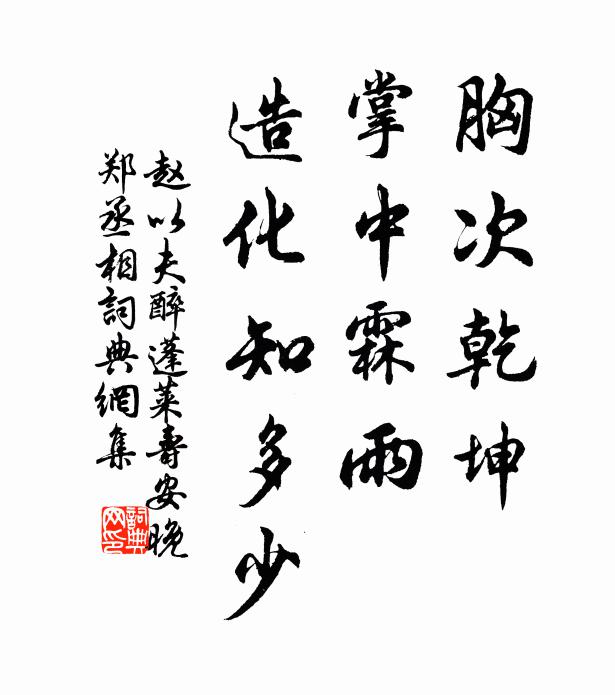 胸次乾坤
掌中霖雨
造化知多少
赵以夫醉蓬莱寿安晚
郑丞相詞典網集
詞典
网印